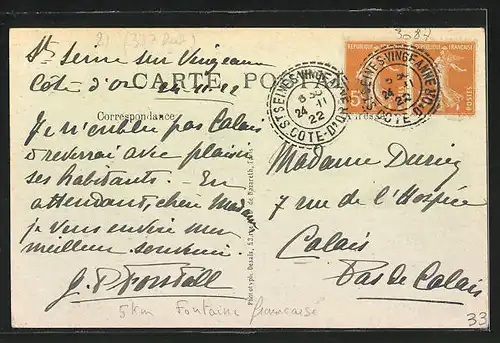 3087
2) (377
St Seine sur Vingeanne
Côte d'or 24-11-22
CARTE POSTALE
Correspondance
Adresse
RÉPUBLIQUE FRANÇAISE
POSTES
5
ST SEINE-S-VINGEANNE
24-11
22
COTE-D'OR
ST SEINE-S-VINGEANNE
24-11
22
COTE-D'OR
Je n'oublie pas Calais
& reverrai avec plaisir
ses habitants. - En
attendant, chère Madame
je vous envoie mon
meilleur souvenir.
Phototyp. Desaix,
de Nazareth, Paris
Madame Duriez
7 rue de l'Hospice
Calais
Pas de Calais
5 km Fontaine française
33